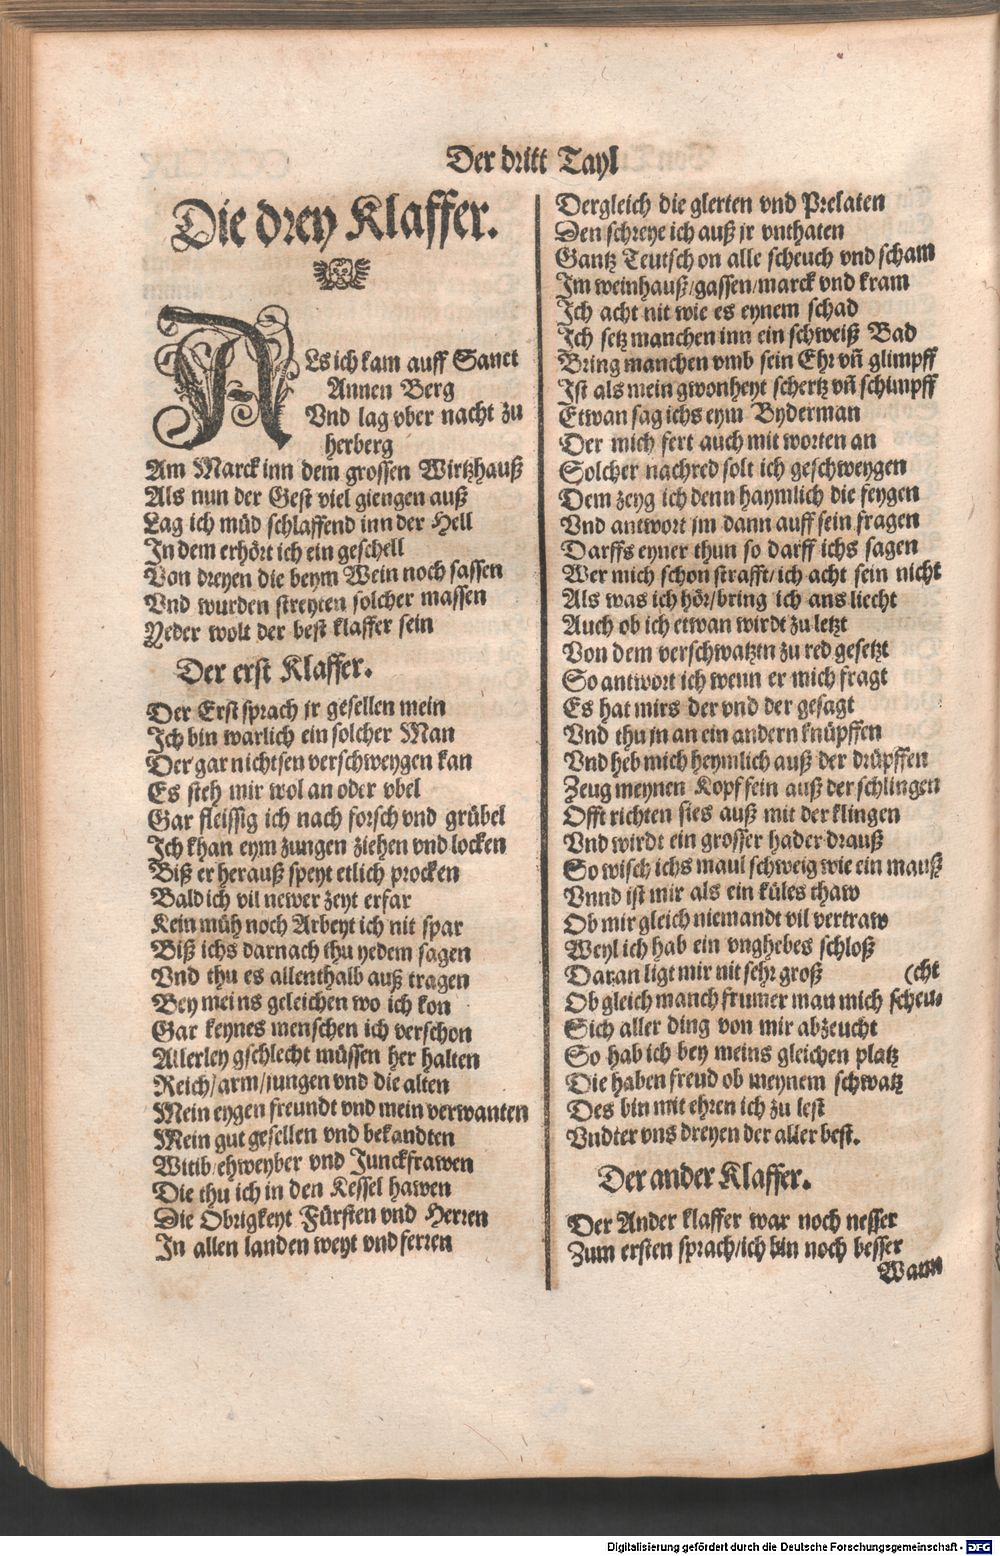 Der dritt Tayl
Die drey Klaffer.
ALs ich kam auff Sanct
Annen Berg
Vnd lag vber nacht zu
herberg
Am Marck inn dem grossen Wirtzhauß
Als nun der Gest viel giengen auß
Lag ich müd schlaffend inn der Hell
In dem erhört ich ein geschell
Von dreyen die beym Wein noch sassen
Vnd wurden streyten solcher massen
Yeder wolt der best klaffer sein
Der erst Klaffer.
Der Erst sprach jr gesellen mein
Ich bin warlich ein solcher Man
Der gar nichtsen verschweygen kan
Es steh mir wol an oder vbel
Gar fleissig ich nach forsch vnd grübel
Ich khan eym zungen ziehen vnd locken
Biß er herauß speyt etlich procken
Bald ich vil newer zeyt erfar
Kein müh noch Arbeyt ich nit spar
Biß ichs darnach thu yedem sagen
Vnd thu es allenthalb auß tragen
Bey meins geleichen wo ich kon
Gar keynes menschen ich verschon
Allerley gschlecht müssen her halten
Reich/arm/jungen vnd die alten
Mein eygen freundt vnd mein verwanten
Mein gut gesellen vnd bekandten
Witib/ehweyber vnd Junckfrawen
Die thu ich in den Kessel hawen
Die Obrigkeyt Fürsten vnd Herren
In allen landen weyt vnd ferren
Dergleich die glerten vnd Prelaten
Den schreye ich auß jr vnthaten
Gantz Teutsch on alle scheuch vnd scham
Im weinhauß/gassen/marck vnd kram
Ich acht nit wie es eynem schad
Ich setz manchen inn ein schweiß Bad
Bring manchen vmb sein Ehr vn̄ glimpff
Ist als mein gwonheyt schertz vn̄ schimpff
Etwan sag ichs eym Byderman
Der mich fert auch mit worten an
Solcher nachred solt ich geschweygen
Dem zeyg ich denn haymlich die feygen
Vnd antwort jm dann auff sein fragen
Darffs eyner thun so darff ichs sagen
Wer mich schon strafft/ich acht sein nicht
Als was ich hör/bring ich ans liecht
Auch ob ich etwan wirdt zu letzt
Von dem verschwatzten zu red gesetzt
So antwort ich wenn er mich fragt
Es hat mirs der vnd der gesagt
Vnd thu jn an ein andern knüpffen
Vnd heb mich heymlich auß der drüpffen
Zeug meynen Kopf fein auß der schlingen
Offt richten sies auß mit der klingen
Vnd wirdt ein grosser hader drauß
So wisch ichs maul schweig wie ein mauß
Vnnd ist mir als ein küles thaw
Ob mir gleich niemandt vil vertraw
Weyl ich hab ein vnghebes schloß
Daran ligt mir nit sehr groß (cht
Ob gleich manch frumer man mich scheu-
Sich aller ding von mir abzeucht
So hab ich bey meins gleichen platz
Die haben freud ob meynem schwatz
Des bin mit ehren ich zu lest
Vndter vns dreyen der aller best.
Der ander Klaffer.
Der Ander klaffer war noch nesser
Zum ersten sprach/ich bin noch besser
Wann
Digitalisierung gefördert durch die Deutsche Forschungsgemeinschaft - DFG